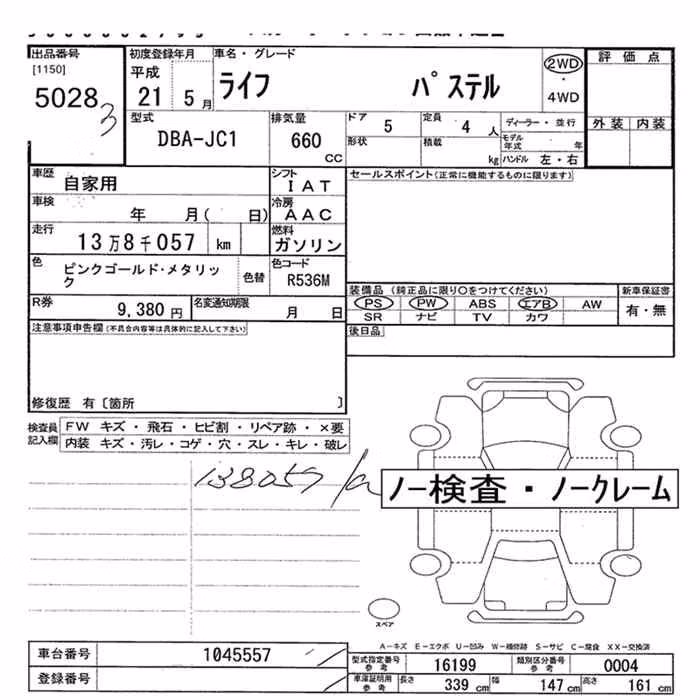 出品番号
[1150]
5028 3
初度登録年月
平成
21 5 月
車名・グレード
ライフ パステル
2WD
・
4WD
評価点
外装 内装
型式
DBA-JC1
排気量
660
CC
ドア
5
定員
4 人
ディーラー・並行
モデル年式 年
形状
積載
kg
ハンドル 左・右
車歴
自家用
シフト
IAT
セールスポイント(正常に機能するものに限ります)
車検
年 月( 日)
冷房
AAC
走行
13万8千057 km
燃料
ガソリン
色
ピンクゴールド・メタリック
色替
色コード
R536M
装備品 (純正品に限り○をつけてください)
新車保証書
PS PW ABS エアB AW
有・無
SR ナビ TV カワ
R券
9,380 円
名変通知期限
月 日
後日品
注意事項申告欄(不具合内容等は具体的に記入して下さい)
修復歴 有〔箇所 〕
検査員記入欄
FW キズ・飛石・ヒビ割・リペア跡・×要
内装 キズ・汚レ・コゲ・穴・スレ・キレ・破レ
138057
ノー検査・ノークレーム
スペア
A-キズ E-エクボ U-凹み W-補修跡 S-サビ C-腐食 XX-交換済
車台番号
1045557
型式指定番号
参考
16199
類別区分番号
参考
0004
登録番号
車庫証明用
参考
長さ 339 cm 幅 147 cm 高さ 161 cm